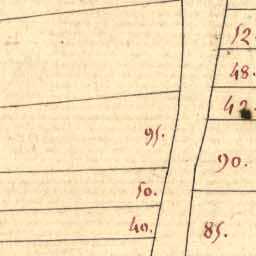 52.
48.
42.
95.
90.
50.
40.
85.